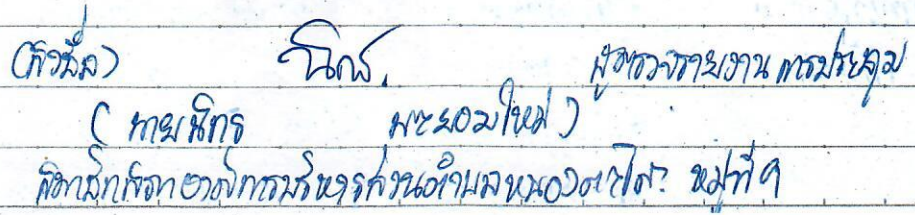 (ลงชื่อ) ผู้ตรวจรายงานการประชุม
( นายนิกร มะยอมใหม่ )
สมาชิกสภาองค์การบริหารส่วนตำบล หมู่ที่ ๑